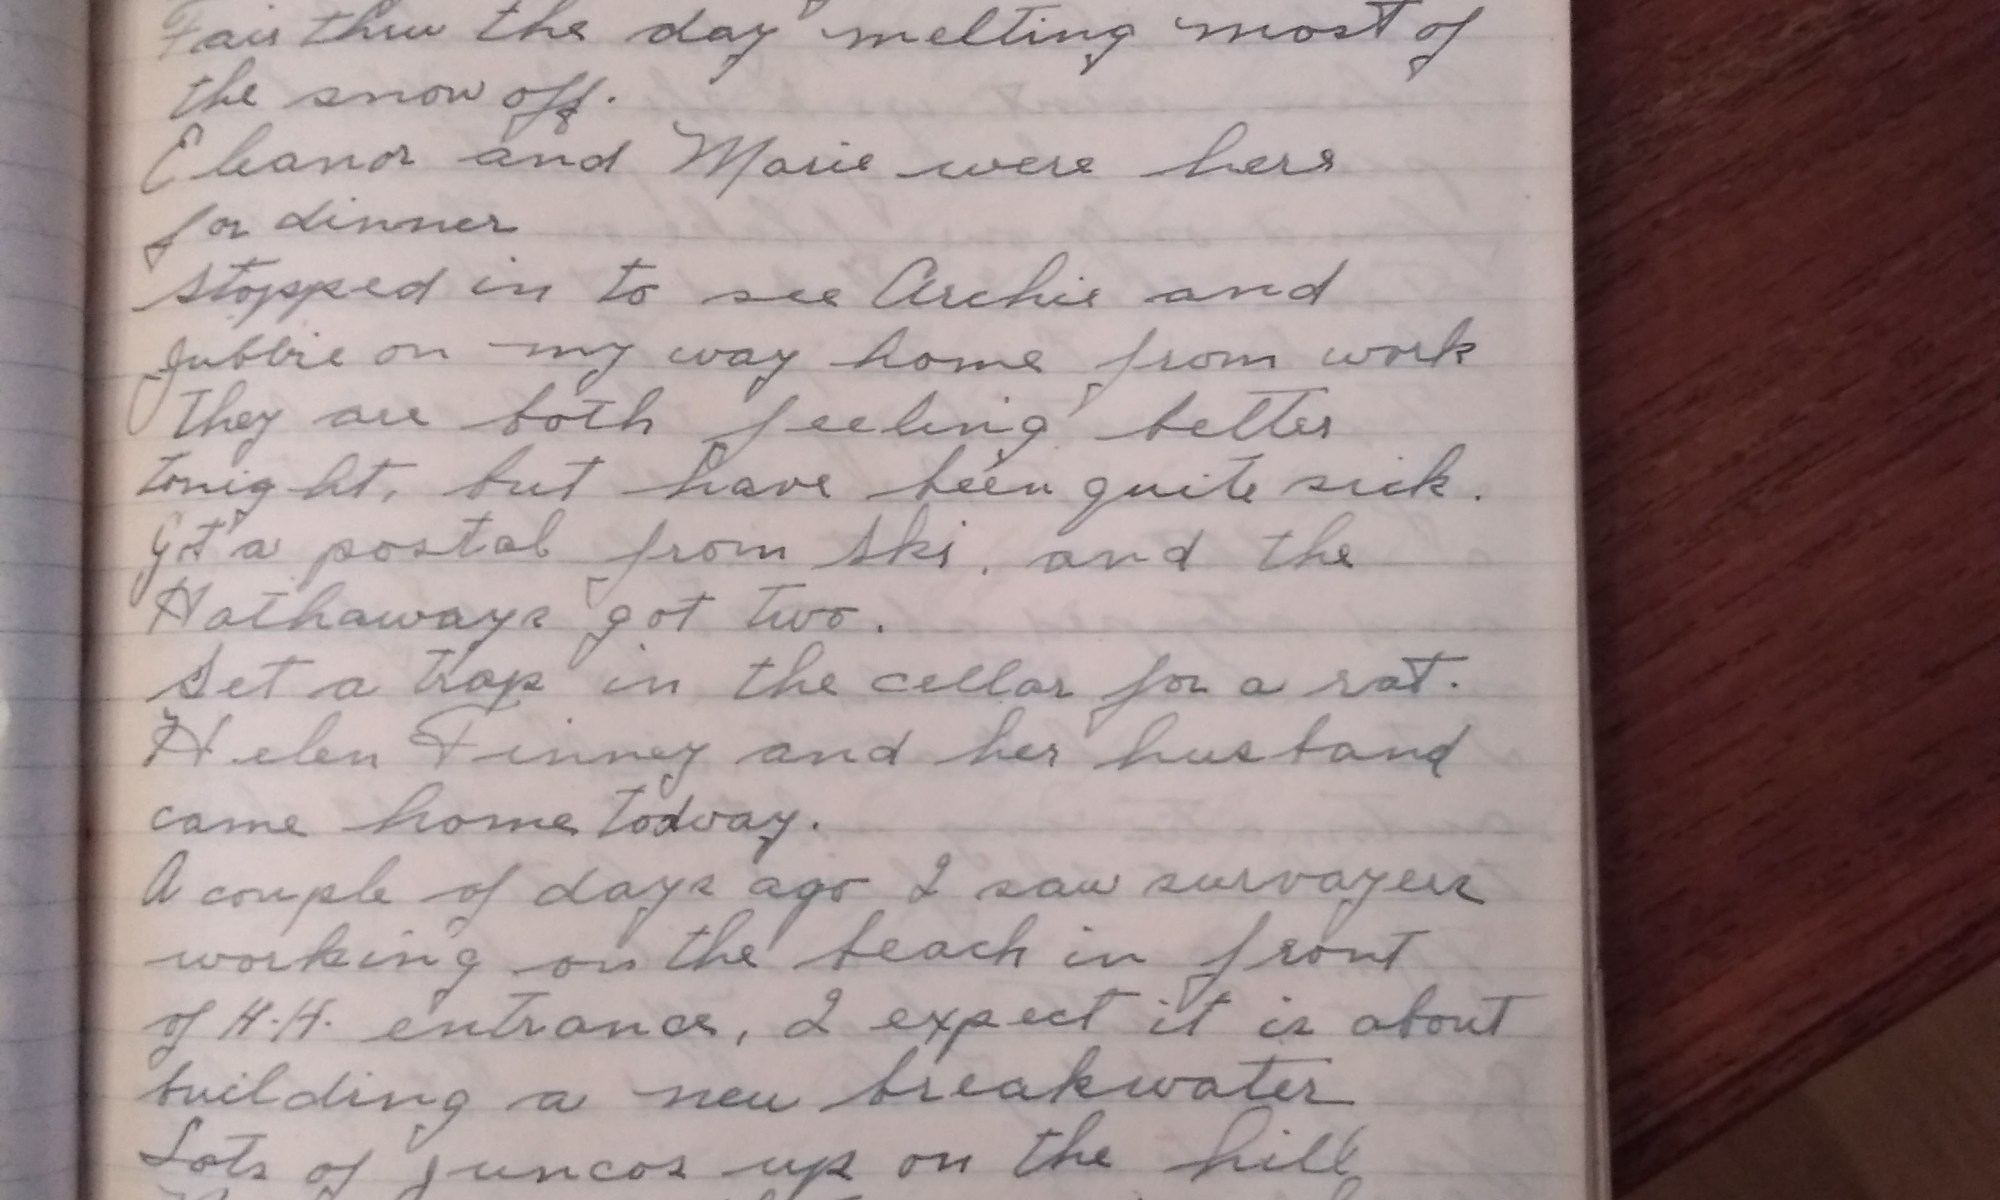 Fair thru the day melting most of
the snow off.
Eleanor and Marie were here
for dinner
Stopped in to see Archie and
Jubbie on my way home from work
They are both feeling better
tonight, but have been quite sick.
Got a postal from Ski. and the
Hathaways got two.
Set a trap in the cellar for a rat.
Helen Finney and her husband
came home today.
A couple of days ago I saw survayers
working on the beach in front
of H.H. entrance, I expect it is about
building a new breakwater
Lots of juncos up on the hill